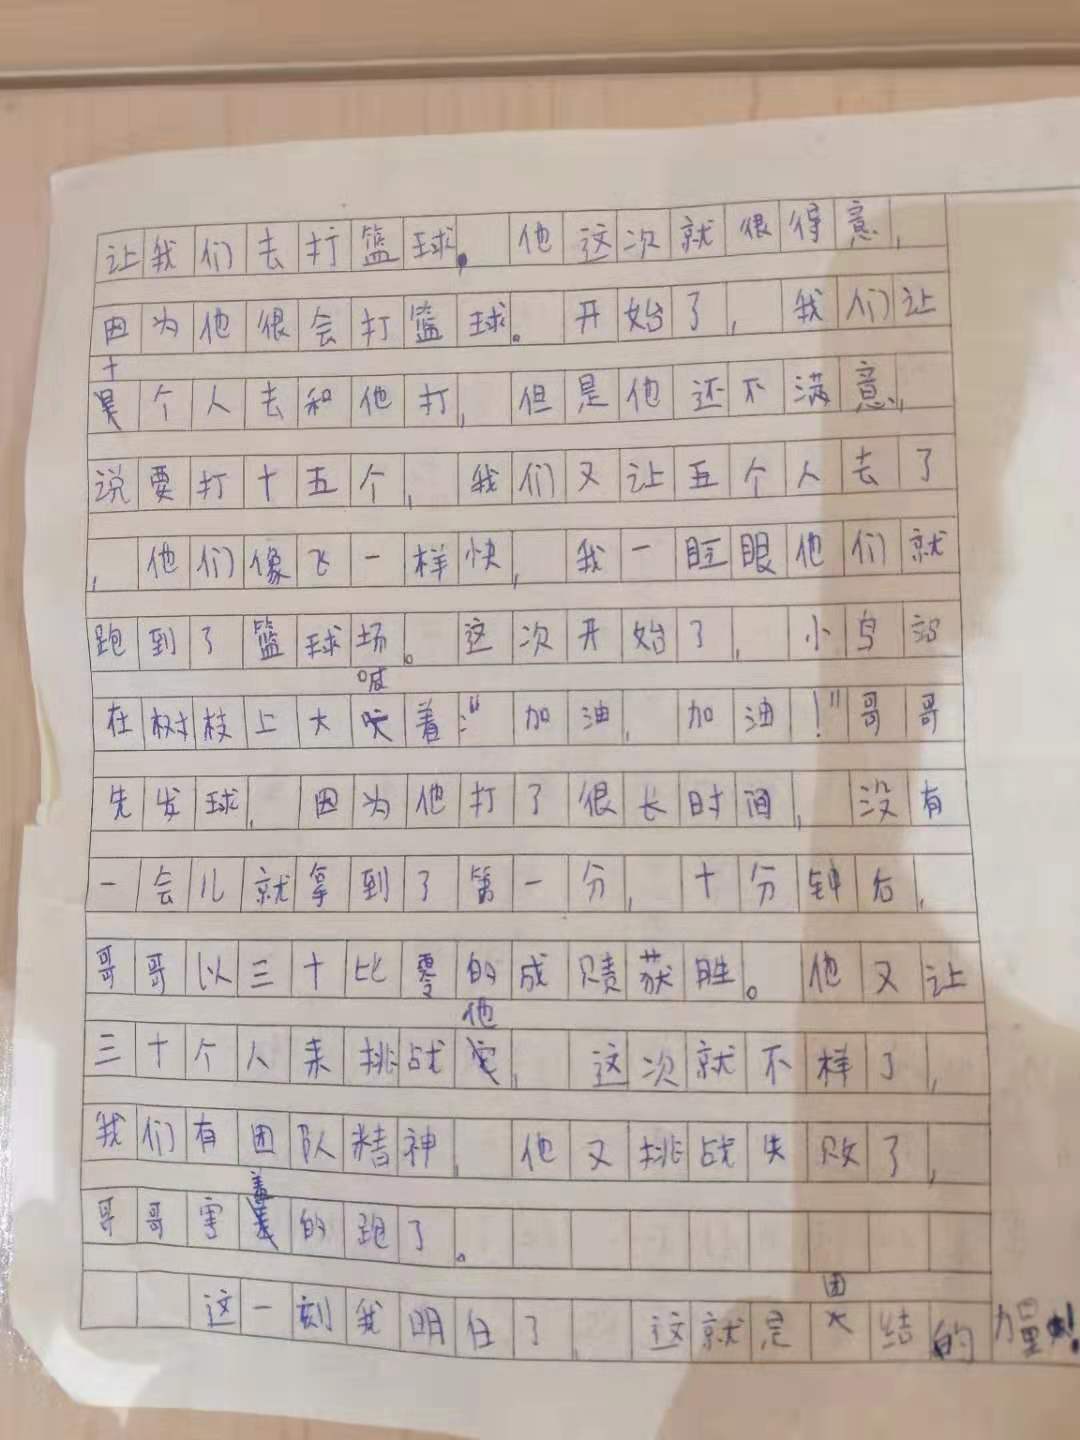 让我们去打篮球。他这次就很得意，
因为他很会打篮球。开始了，我们让
十个人去和他打，但是他还不满意，
说要打十五个，我们又让五个人去了
，他们像飞一样快，我一眨眼他们就
跑到了篮球场。这次开始了，小鸟站
在树枝上大喊着：“加油，加油！”哥哥
先发球，因为他打了很长时间，没有
一会儿就拿到了第一分，十分钟后，
哥哥以三十比零的成赎获胜。他又让
三十个人来挑战他，这次就不样了，
我们有团队精神，他又挑战失败了，
哥哥害羞的跑了。
这一刻我明白了，这就是团结的力量！